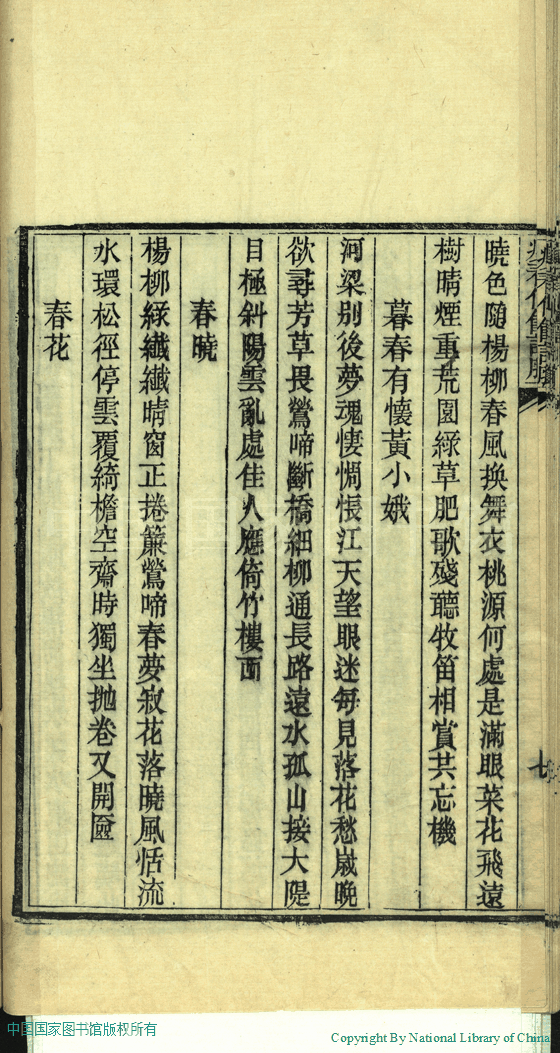 曉色随楊柳春風換舞衣桃源何處是滿眼菜花飛遠
樹晴煙重荒園綠草肥歌殘聽牧笛相賞共忘機
暮春有懷黃小娥
河梁別後夢魂悽惆悵江天望眼迷每見落花愁歲晚
欲尋芳草畏鶯啼斷橋細柳通長路遠水孤山接大隄
目極斜陽雲亂處佳人應倚竹樓西
春曉
楊柳綠纖纖晴窗正捲簾鶯啼春夢寂花落曉風恬流
水環松徑停雲覆綺檐空齋時獨坐抛卷又開匳
春花
七
中国国家图书馆版权所有
Copyright By National Library of China